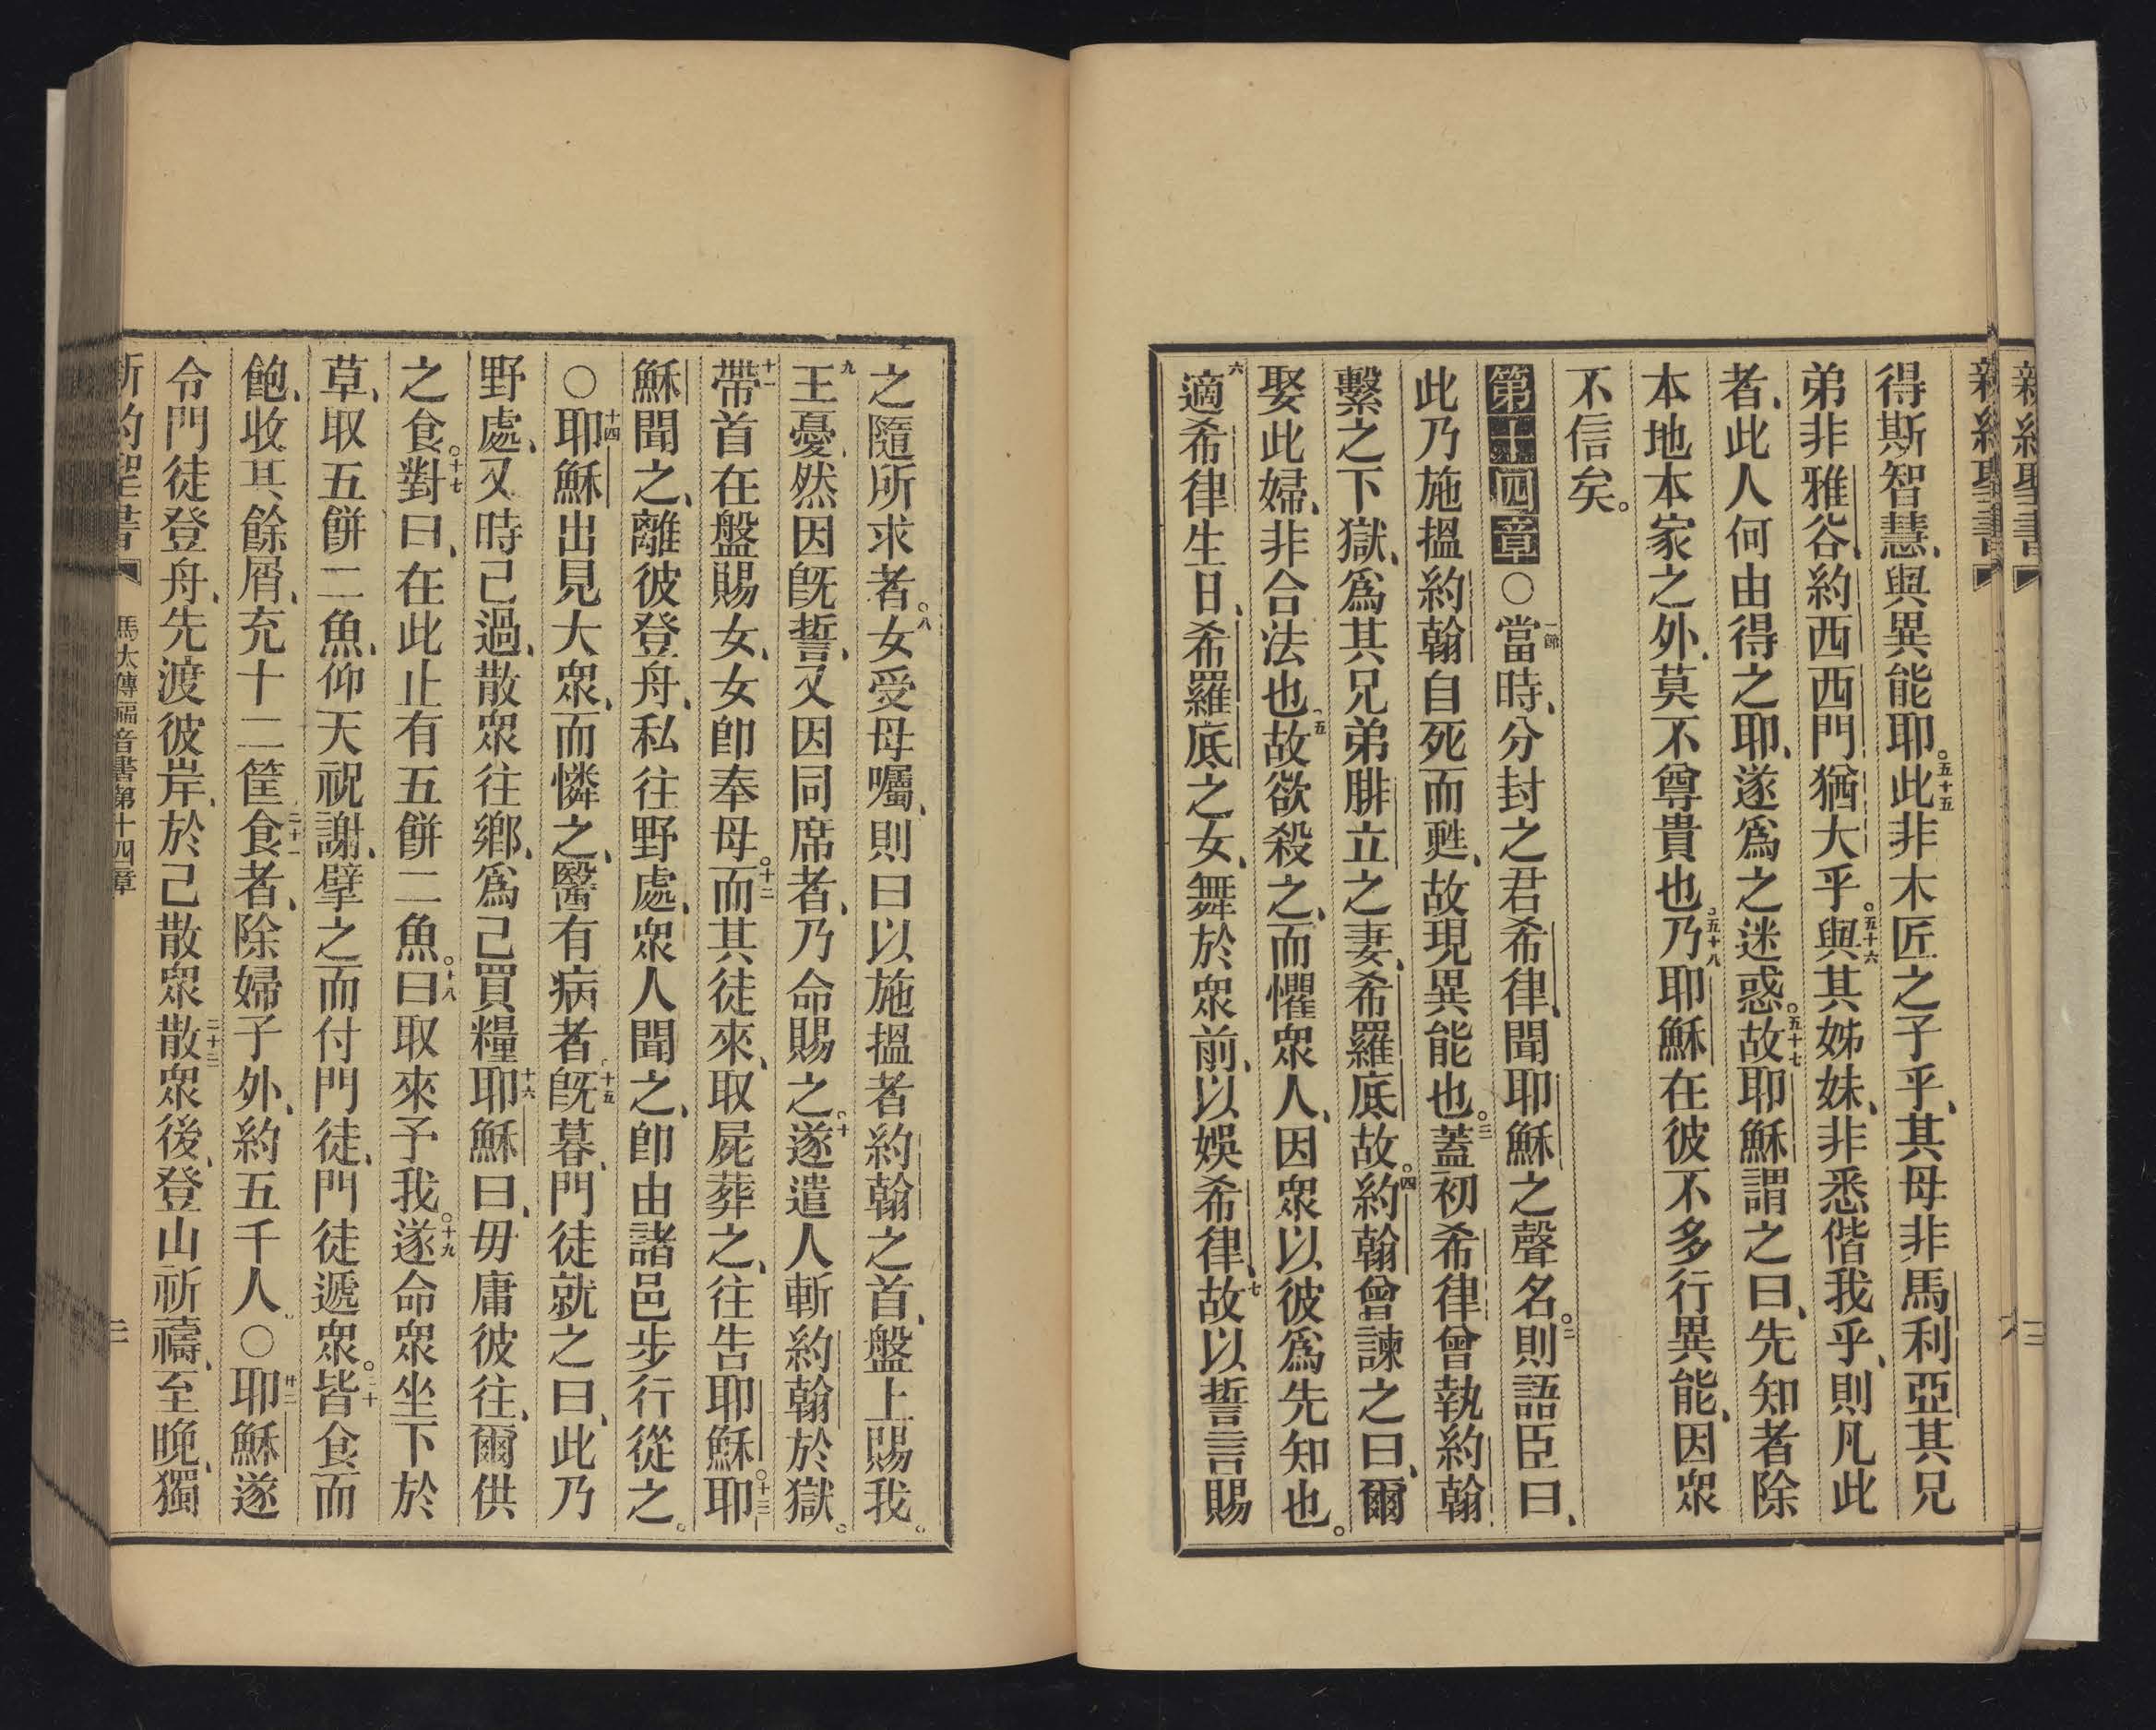 新約聖書
得斯智慧、與異能耶。五十五此非木匠之子乎、其母非馬利亞其兄
弟非雅谷、約西西門猶大乎。五十六與其姊妹、非悉偕我乎、則凡此
者、此人何由得之耶、遂爲之迷惑。五十七故耶穌謂之曰、先知者除
本地本家之外、莫不尊貴也、五十八乃耶穌在彼不多行異能、因眾
不信矣。
第十四章○一節當時、分封之君希律、聞耶穌之聲名。二則語臣曰、
此乃施搵約翰自死而甦、故現異能也。三蓋初希律曾執約翰
繫之下獄、爲其兄弟腓立之妻、希羅底故。四約翰曾諫之曰、爾
娶此婦、非合法也、五故欲殺之、而懼眾人、因眾以彼爲先知也。
六適希律生日、希羅底之女、舞於眾前、以娛希律、七故以誓言賜
之隨所求者。八女受母囑、則曰以施搵者約翰之首、盤上賜我。
九王憂、然因旣誓、又因同席者、乃命賜之。十遂遣人斬約翰於獄。
十一帶首在盤賜女、女卽奉母。十二而其徒來、取屍葬之、往告耶穌。十三耶
穌聞之、離彼登舟、私往野處、眾人聞之、卽由諸邑步行從之。
○十四耶穌出見大眾、而憐之、醫有病者。十五旣暮、門徒就之曰、此乃
野處、又時已過、散眾往鄉、爲己買糧十六耶穌曰、毋庸彼往、爾供
之食。十七對曰、在此止有五餅二魚。十八曰取來予我。十九遂命眾坐下於
草、取五餅二魚、仰天祝謝、擘之而付門徒、門徒遞眾。二十皆食而
飽、收其餘屑、充十二筐二十一食者、除婦子外、約五千人。○廿二耶穌遂
令門徒登舟、先渡彼岸、於己散眾二十三散眾後、登山祈禱、至晚、獨
新約聖書 馬太傳福音書第十四章